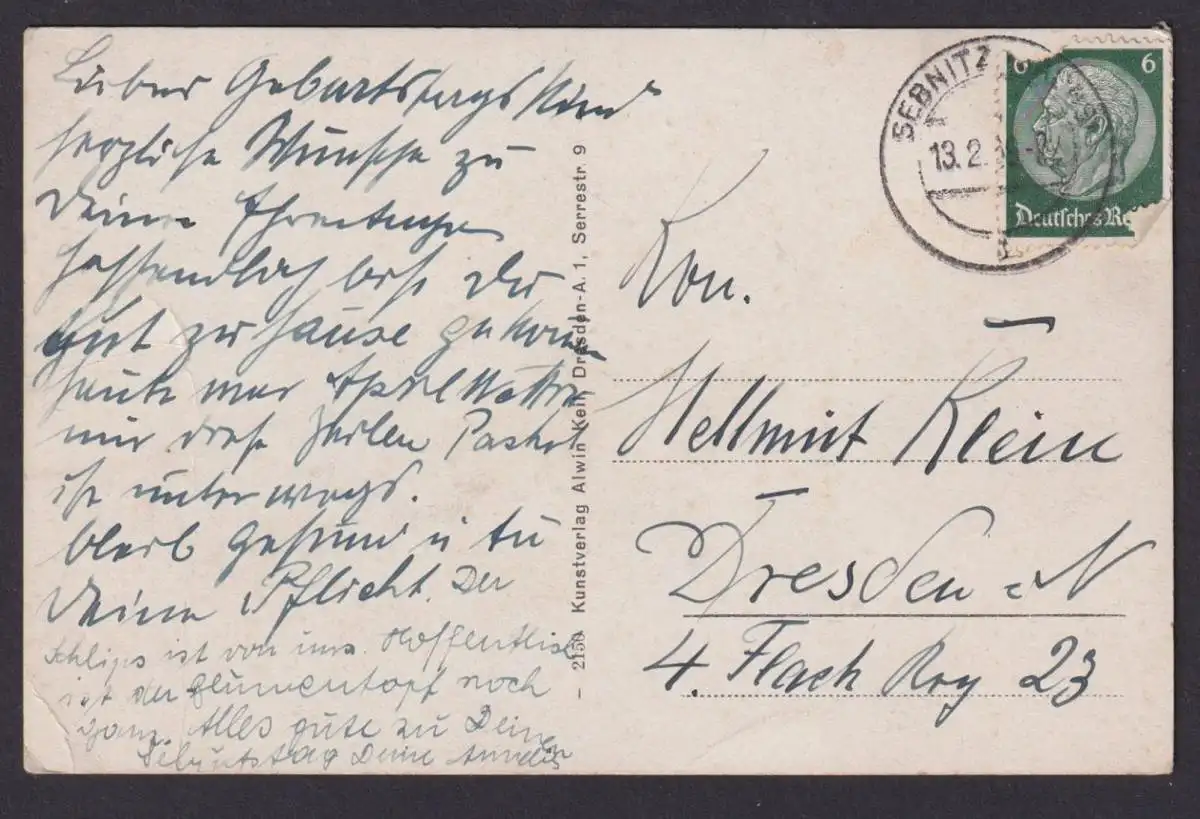 Lieber Geburtstagskind
herzliche Wünsche zu
Deinen
hoffendlich bist Du
gut zu hause gekomen
heute war Aprilwetter
nur diese Zeilen Packet
ist unterwegs.
bleib Gesund u tu
Deine Pflicht. Der
Schlips ist von uns. Hoffentlich
ist der Blumentopf noch
ganz. Alles gute zu Dein
Geburtstag Deine
- 2150 Kunstverlag Alwin Keil, Dresden-A. 1, Serrestr. 9
SEBNITZ
13.2.
6 6
Deutsches Re
Kon.
Hellmut Klein
Dresden N
4. Flack Rrg 23